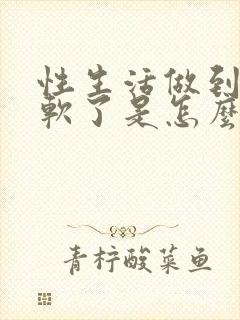 性生活做到
軟了是怎麼
青柠酸菜鱼